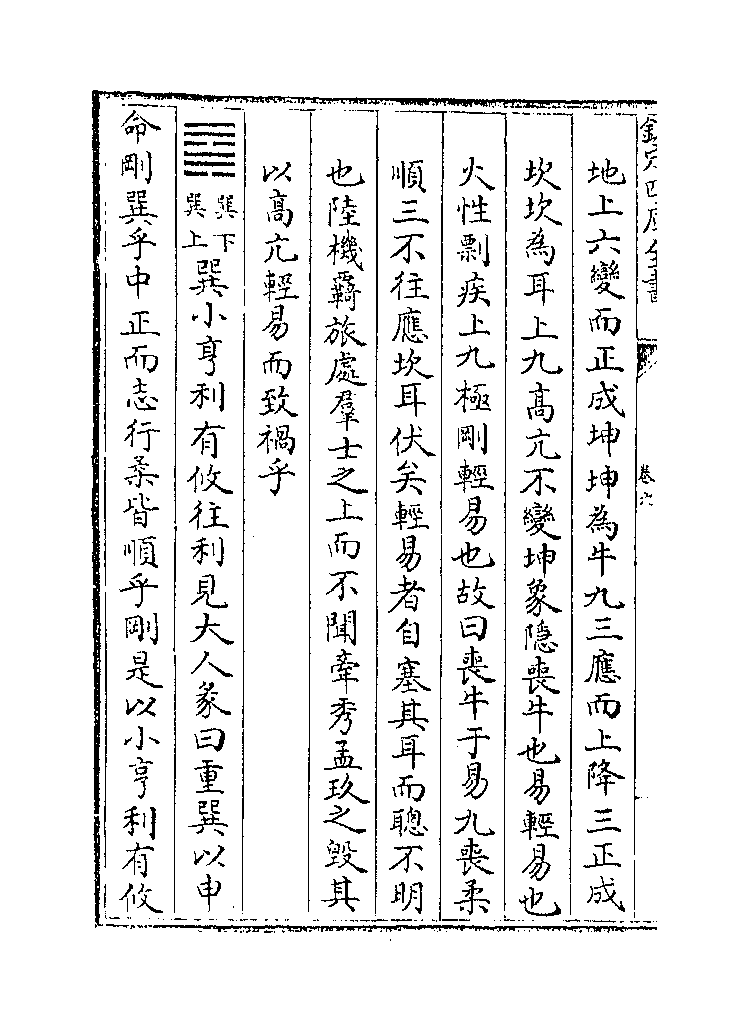 欽定四庫全書
卷六
地上六變而正成坤坤為牛九三應而上降三正成
坎坎為耳上九高亢不變坤象隠喪牛也易輕易也
火性剽疾上九極剛輕易也故曰喪牛于易九喪柔
順三不往應坎耳伏矣輕易者自塞其耳而聰不明
也陸機覊旅處羣士之上而不聞牽秀孟玖之毀其
以高亢輕易而致禍乎
䷸巽下巽上巽小亨利有攸往利見大人彖曰重巽以申
命剛巽乎中正而志行柔皆順乎剛是以小亨利有攸